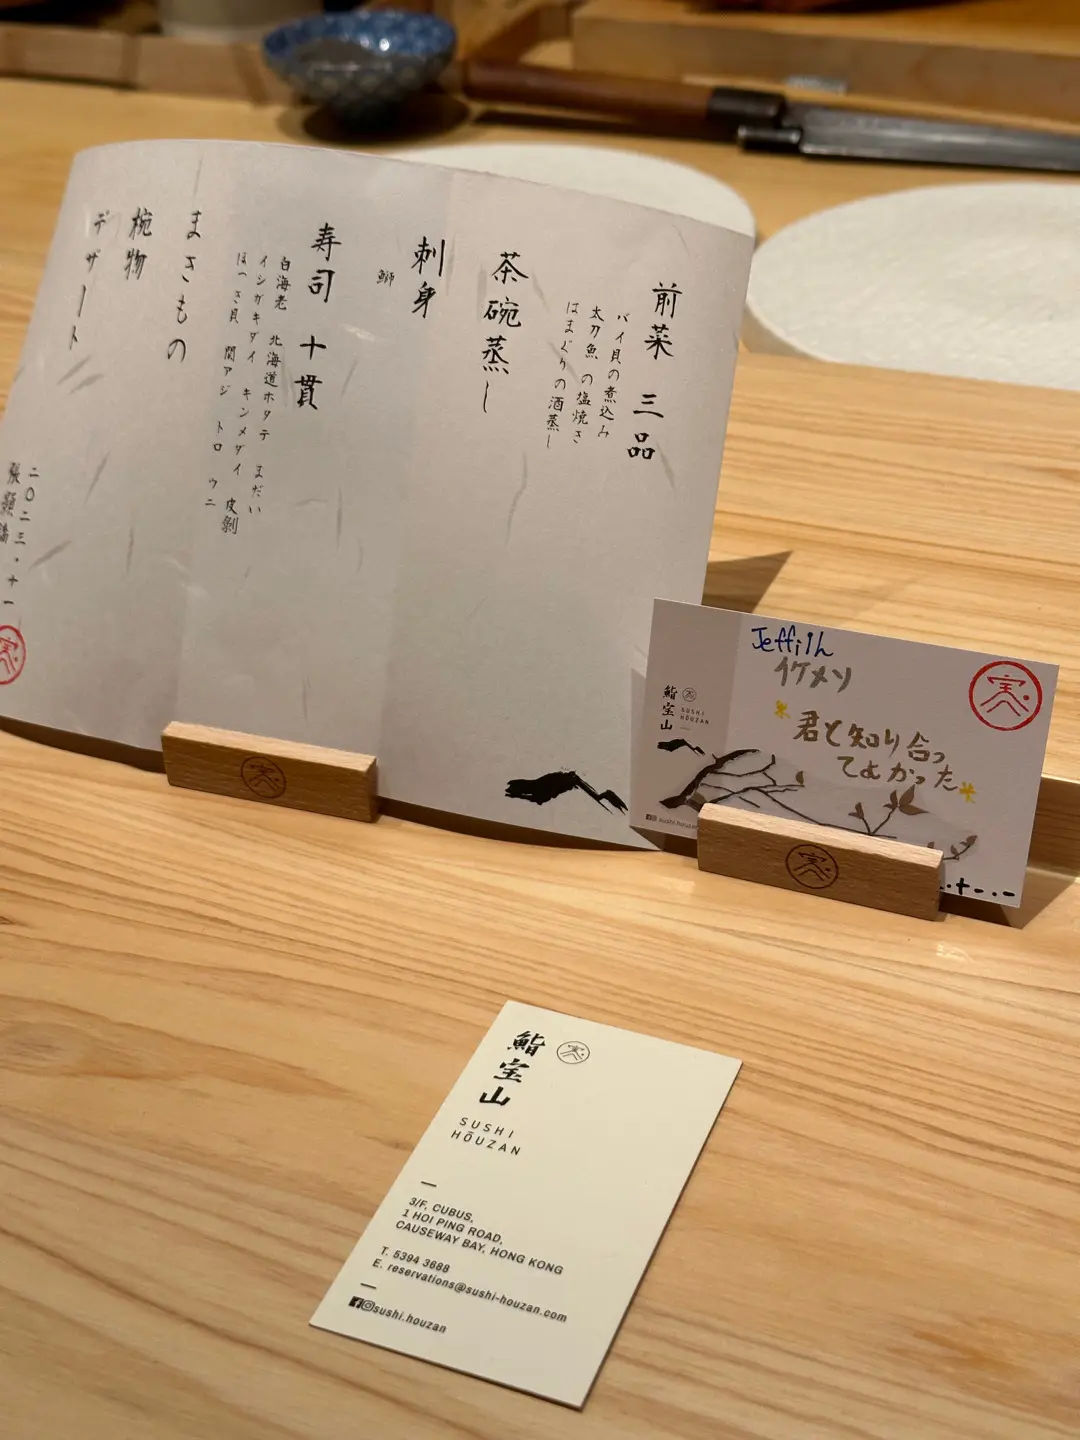 前菜 三品
バイ貝の煮込み
太刀魚の塩焼き
はまぐりの酒蒸し
茶碗蒸し
刺身
鰤
寿司 十貫
白海老 北海道ホタテ まだい
イシガキダイ キンメダイ 皮剝
ほっき貝 関アジ トロ ウニ
まきもの
椀物
デザート
二〇二三・十一
張顥
実
実
Jeffilh
イケメソ
君と知り合っ
てよかった
実
鮨宝山
SUSHI
HŌUZAN
sushi.houzan
実
・十一・一
鮨宝山
SUSHI
HŌUZAN
3/F, CUBUS,
1 HOI PING ROAD,
CAUSEWAY BAY, HONG KONG
T. 5394 3688
E. reservations@sushi-houzan.com
sushi.houzan